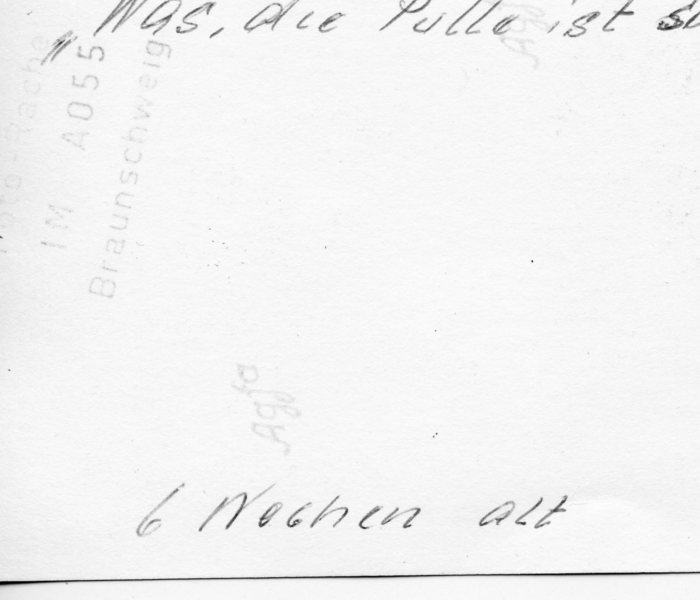 „Was, die Pulle ist
Foto-Rache
IM A055
Braunschweig
Agfa
Agfa
6 Wochen alt